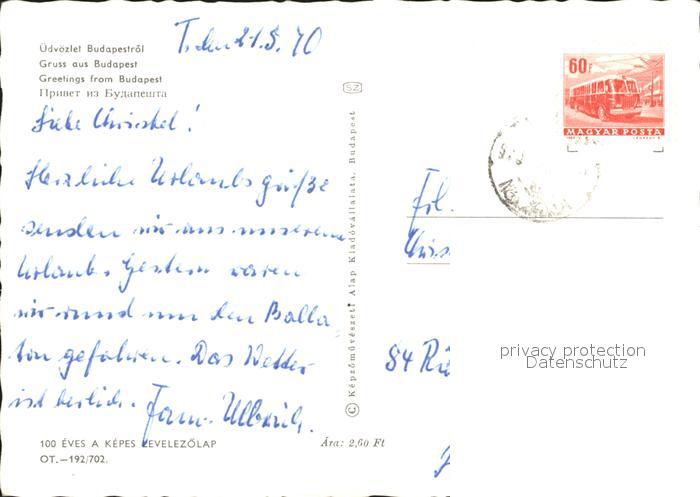 Üdvözlet Budapestről
Gruss aus Budapest
Greetings from Budapest
Привет из Будапешта
T. den 21.8.70
Liebe Christel!
Herzliche Urlaubsgrüße
senden wir aus unserem
Urlaub. Gestern waren
wir rund um den Balla-
ton gefahren. Das Wetter
ist herlich. Fam. Ulbrich.
100 ÉVES A KÉPES LEVELEZŐLAP
OT.—192/702.
Ára: 2,60 Ft
© Képzőművészeti Alap Kiadóvállalata, Budapest
SZ
60f
MAGYAR POSTA
Frl.
84
privacy protection
Datenschutz